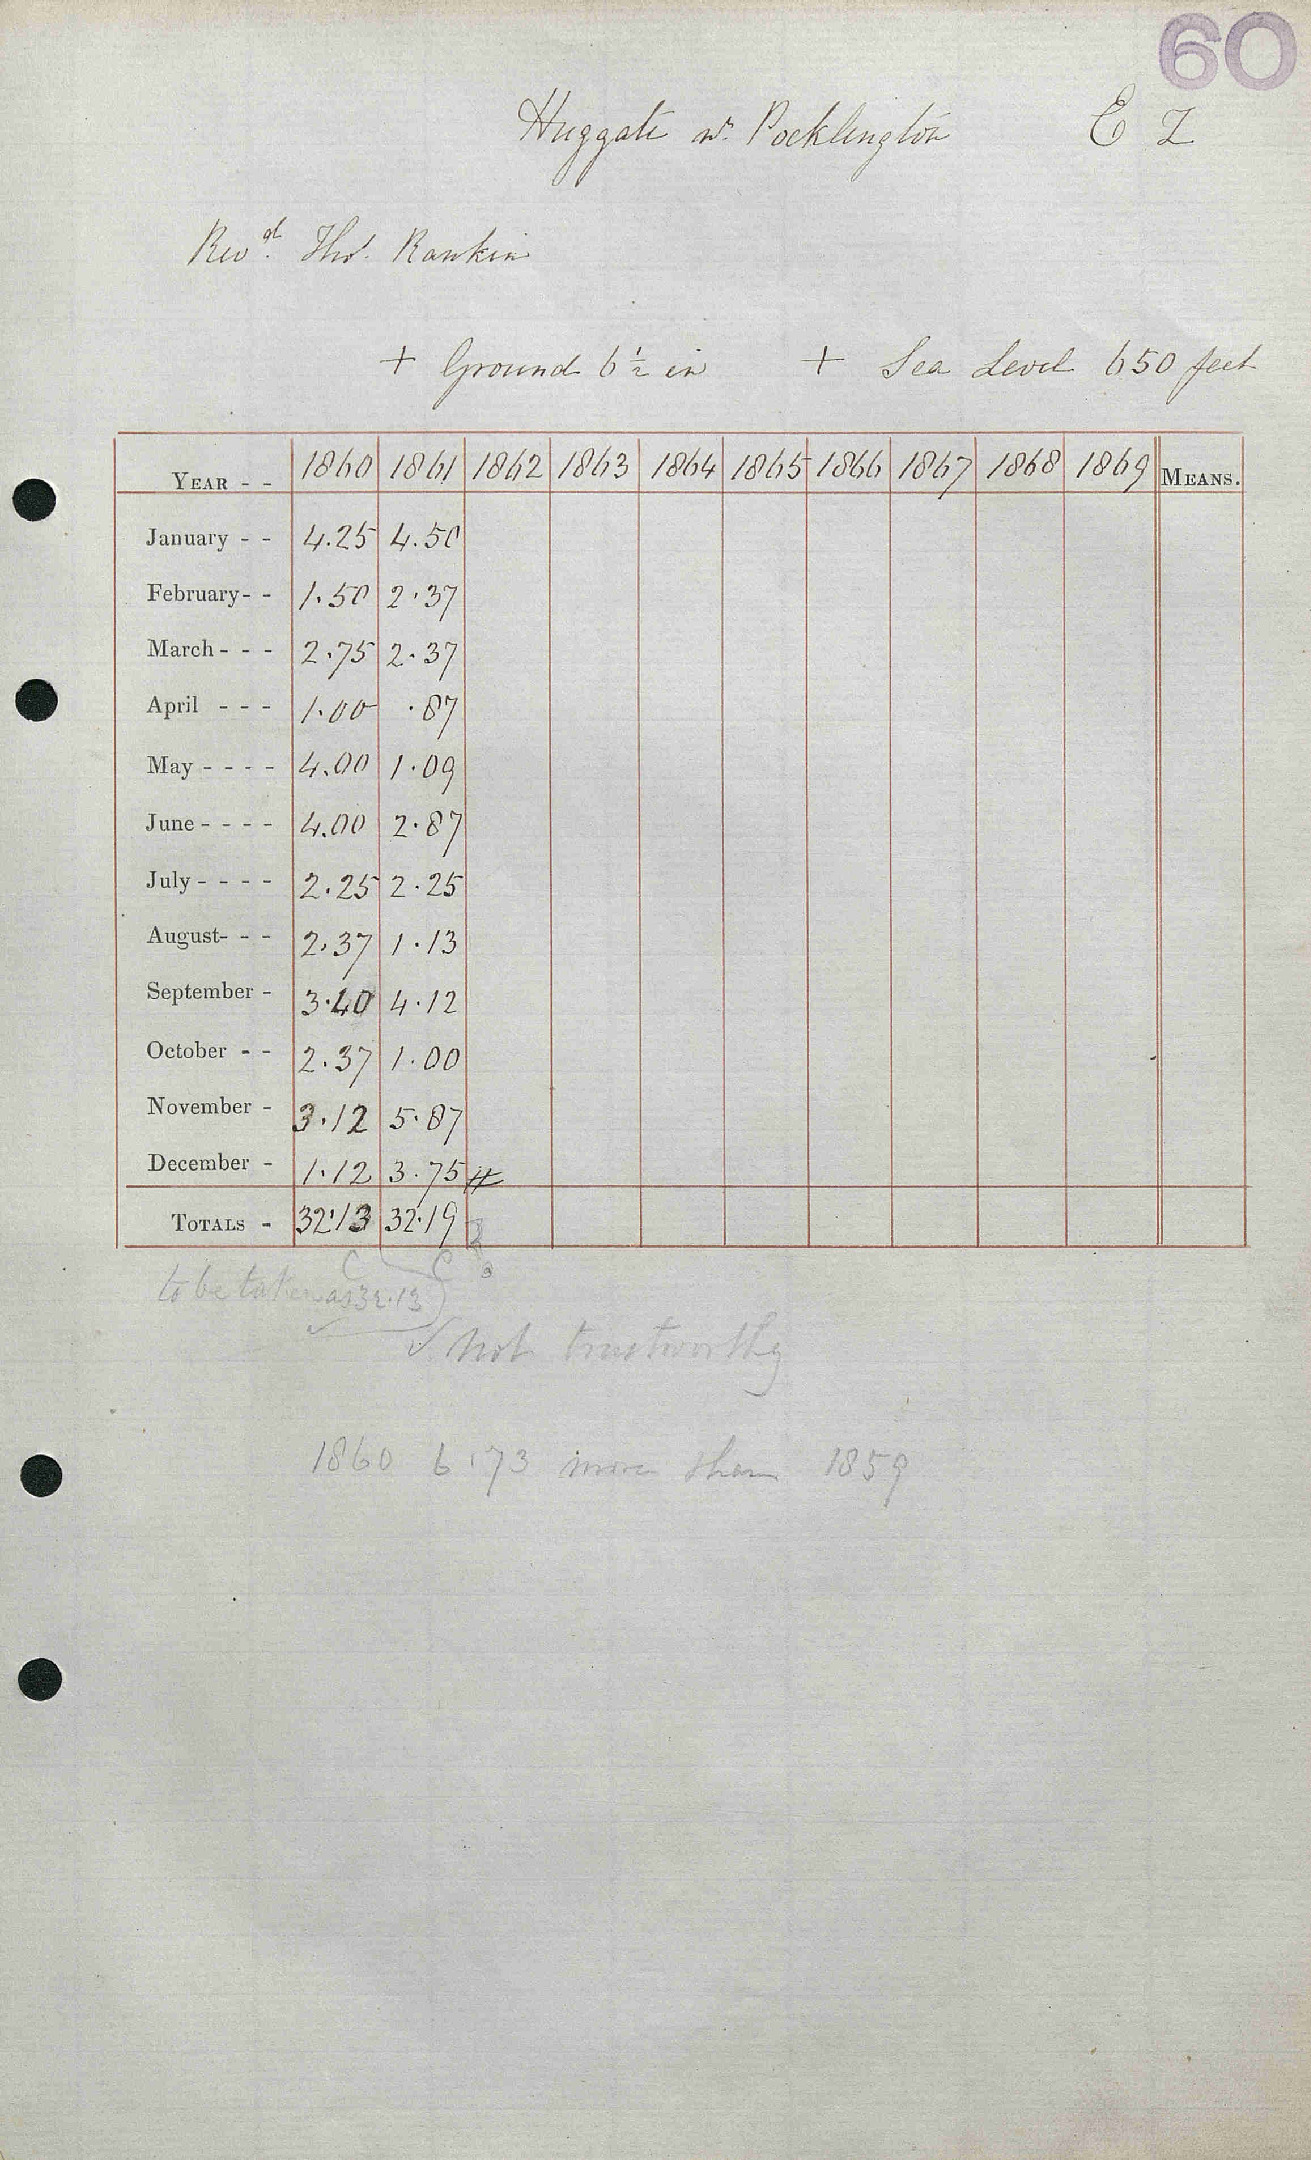 60
Huggate nr. Pocklington E Z
Revd. Thos. Rankin
+ Ground 6½ in + Sea Level 650 feet
YEAR - - 1860 1861 1862 1863 1864 1865 1866 1867 1868 1869 MEANS.
January - - 4.25 4.50
February - - 1.50 2.37
March - - - 2.75 2.37
April - - - 1.00 .87
May - - - - 4.00 1.09
June - - - - 4.00 2.87
July - - - - 2.25 2.25
August - - - 2.37 1.13
September - 3.40 4.12
October - - 2.37 1.00
November - 3.12 5.87
December - 1.12 3.75
TOTALS - 32.13 32.19
C C
to be taken as 32.13
Not trustworthy
1860 6.73 more than 1859